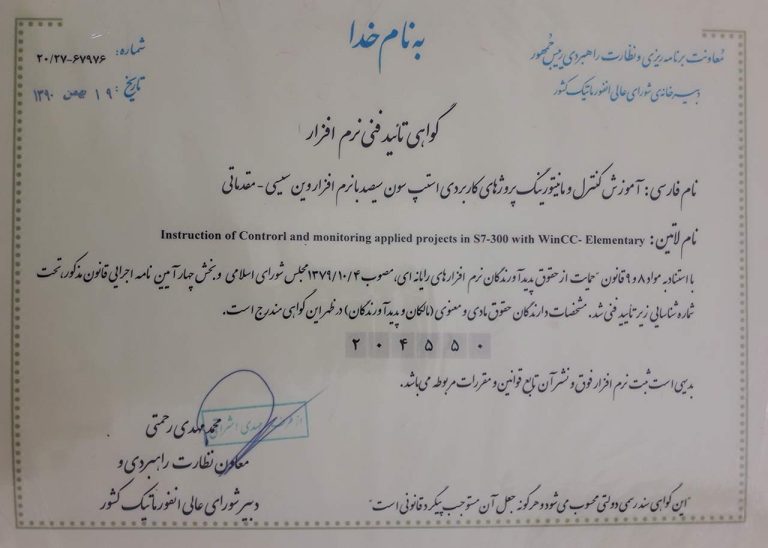 به نام خدا
معاونت برنامه ریزی و نظارت راهبردی رییس جمهور
دبیرخانه‌ی شورای عالی انفورماتیک کشور
شماره: ۲۰/۲۷-۶۷۹۷۶
تاریخ: ۱۹ بهمن ۱۳۹۰
گواهی تائید فنی نرم افزار
نام فارسی: آموزش کنترل و مانیتورینگ پروژهای کاربردی استپ سون سیصد با نرم افزار وین سیسی - مقدماتی
نام لاتین: Instruction of Controrl and monitoring applied projects in S7-300 with WinCC- Elementary
با استناد به مواد ۸ و ۹ قانون "حمایت از حقوق پدیدآورندگان نرم افزارهای رایانه ای، مصوب ۱۳۷۹/۱۰/۴ مجلس شورای اسلامی و بخش چهار آیین نامه اجرایی قانون مذکور، تحت
شماره شناسایی زیر تایید فنی شد. مشخصات دارندگان حقوق مادی و معنوی (مالکان و پدیدآورندگان) در ظهر این گواهی مندرج است.
۲۰۴۵۵۰
بدیهی است ثبت نرم افزار فوق و نشر آن تابع قوانین و مقررات مربوطه می‌باشد.
از طرف مهدی
محمدمهدی رحمتی
معاون نظارت راهبردی و
دبیر شورای عالی انفورماتیک کشور
"این گواهی سند رسمی دولتی محسوب می‌شود و هرگونه جعل آن مستوجب پیگرد قانونی است"